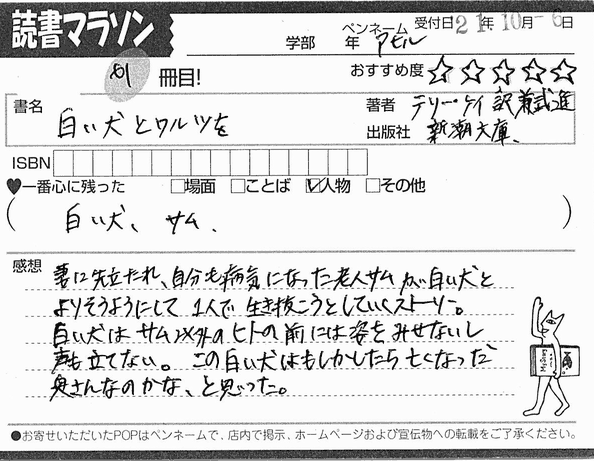 読書マラソン
学部 年 ペンネーム アセル 受付日 21年10月-6日
91冊目!
おすすめ度☆☆☆☆☆
書名 白い犬とワルツを
著者 テリー・ケイ 訳 兼武進
出版社 新潮文庫、
ISBN
♥一番心に残った □場面 □ことば ☑人物 □その他
( 白い犬、サム、 )
感想
妻に先立たれ、自分も病気になった老人サムが白い犬と
よりそうようにして1人で生き抜こうとしていくストーリー。
白い犬はサム以外のヒトの前には姿をみせないし
声も立てない。この白い犬はもしかしたら亡くなった
奥さんなのかな、と思った。
●お寄せいただいたPOPはペンネームで、店内で掲示、ホームページおよび宣伝物への転載をご了承ください。